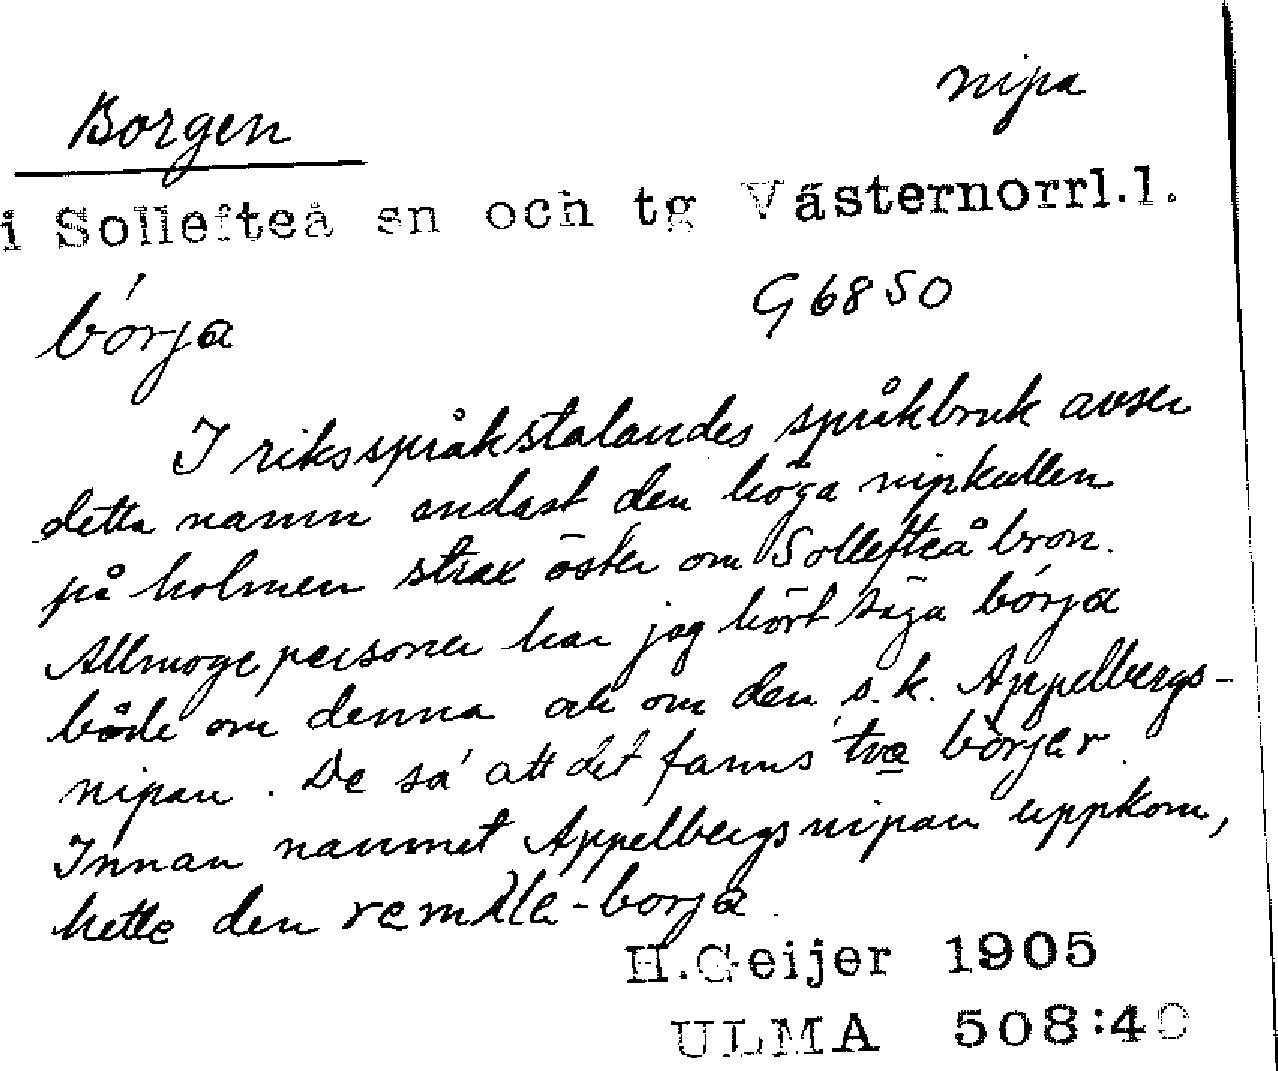 nipa
Borgen
i Sollefteå sn och tg Västernorrl.l.
G 6850
bórja
I riksspråkstalandes språkbruk avser
detta namn endast den höga nipkullen
på holmen strax öster om Sollefteåbron.
Allmogepersoner har jag hört säga bórja
både om denna och om den s.k. Appelbergs-
nipan. De sa' att det fanns tvɐ bòrjer.
Innan namnet Appelbergsnipan uppkom,
hette den -borja.
H.Geijer 1905
ULMA 508:40